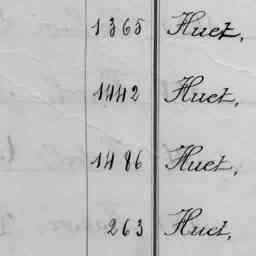 1365 Huet,
1442 Huet,
1486 Huet,
263 Huet,